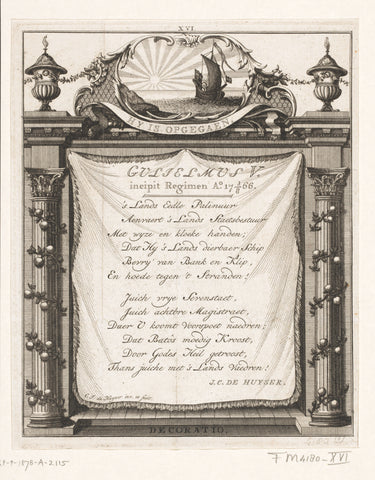 XVI
HY IS OPGEGAEN.
GULIELMUS V.
incipit Regimen Aº 17 8/3 66.
's Lands Eedle Palinuur
Aenvaert 's Lands Staetsbestuur
Met wyze en kloeke handen;
Dat Hy 's Lands dierbaer Schip
Bevry van Bank en Klip,
En hoede tegen 't Stranden!
Juich vrye Sevenstaet,
Juich achtbre Magistraet,
Daer U koomt Voorspoet naedren;
Dat Batos moedig Kroost,
Door Godes Heil getroost,
Thans juiche met 's Lands Vaedren!
J. C. DE HUYSER.
DECORATIO.
F M 4180-XVI
1878-A-2115